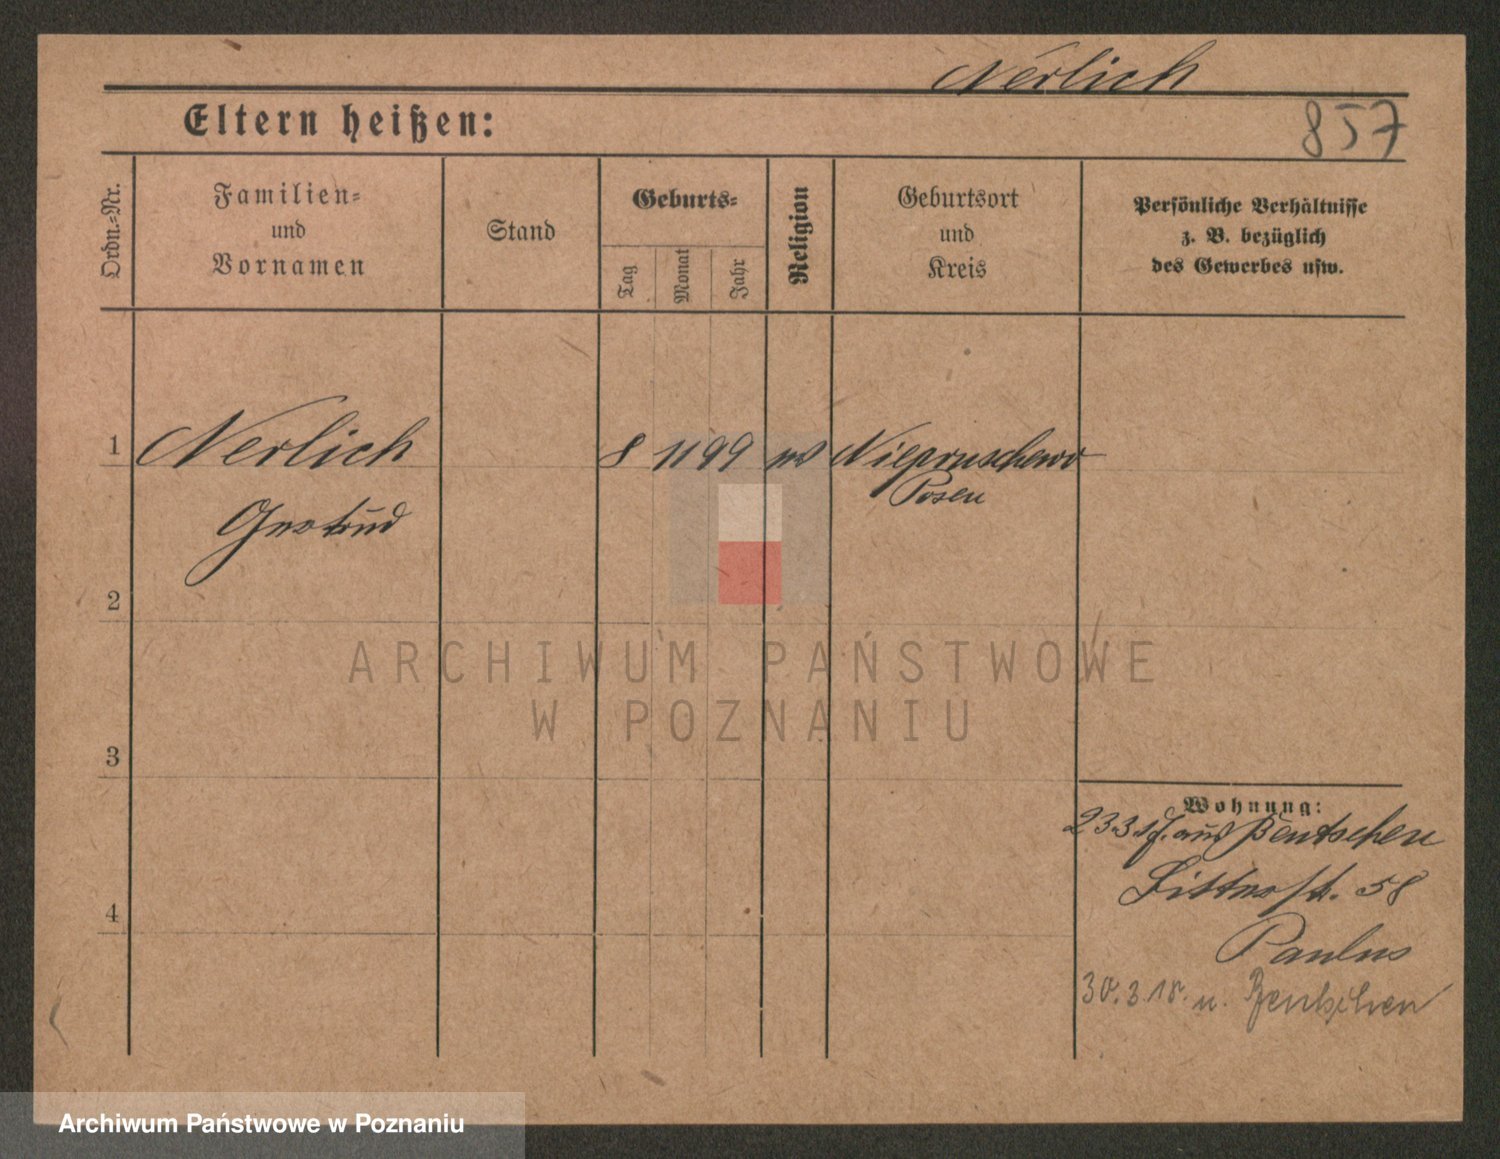 Nerlich
Eltern heißen:
857
Ordn.-Nr.
Familien-
und
Vornamen
Stand
Geburts-
Tag
Monat
Jahr
Religion
Geburtsort
und
Kreis
Persönliche Verhältnisse
z. B. bezüglich
des Gewerbes usw.
1 Nerlich 8 11 99 Niepruschewo
Posen
Gertrud
2
ARCHIWUM PAŃSTWOWE
W POZNANIU
3
Wohnung:
23.3.17. aus Bentschen
4
Ritterstr. 58
Paulus
30.3.18. n. Bentschen
Archiwum Państwowe w Poznaniu